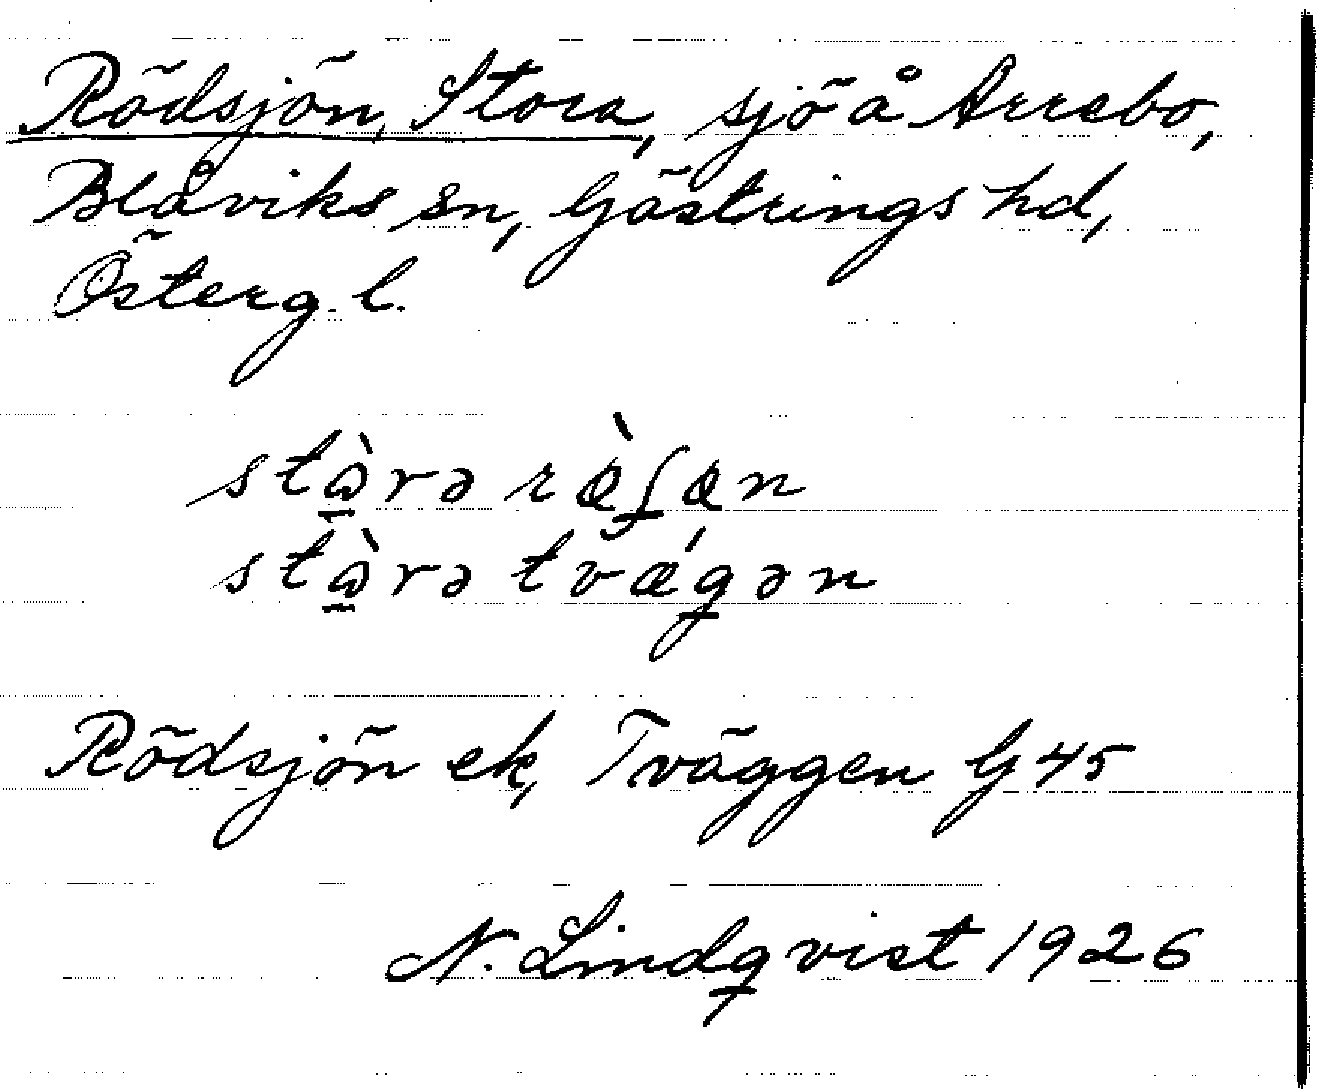 Rödsjön, Stora, sjö å Arrebo,
Blåviks sn, Göstrings hd,
Österg. l.
stὼ̲rə ræ̀ʃæn
stὼ̲rə tvǽgən
Rödsjön ek, Tväggen G 45
N. Lindqvist 1926